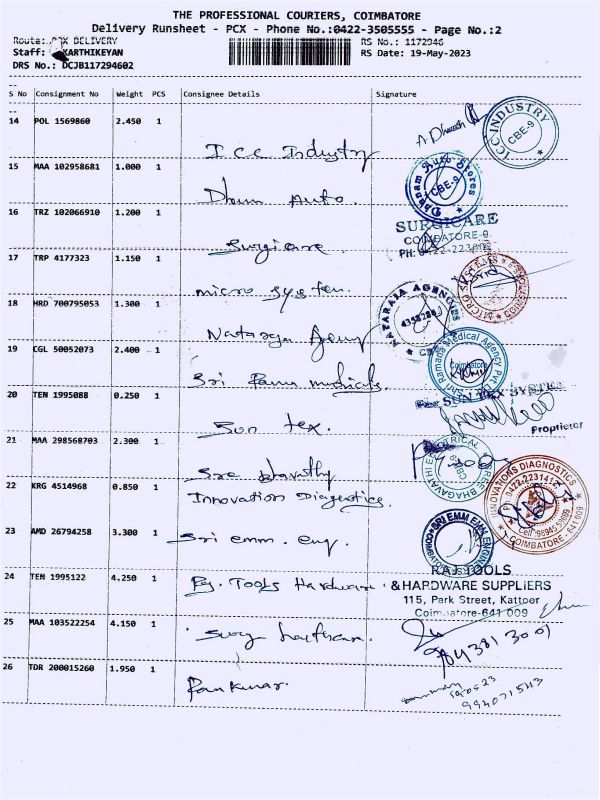 THE PROFESSIONAL COURIERS, COIMBATORE
Delivery Runsheet - PCX - Phone No.:0422-3505555 - Page No.:2
Route: PDX DELIVERY
RS No.: 1172946
Staff: KARTHIKEYAN
RS Date: 19-May-2023
DRS No.: DCJB117294602
S No Consignment No Weight PCS Consignee Details Signature
14 POL 1569860 2.450 1
ICC Industry
A Dhinesh
ICC INDUSTRY CBE-9
15 MAA 102958681 1.000 1
Dhum Auto.
Dhanam Auto Stores CBE-9
16 TRZ 102066910 1.200 1
Surgicare
SURGICARE
COIMBATORE-9.
PH: 0422-22300
17 TRP 4177323 1.150 1
micro system.
MICRO SYSTEMS COIMBATORE
18 HRD 700795053 1.300 1
Nataraja Agency
NATARAJA AGENCIES 4358280 CBE
19 CGL 50052073 2.400 1
Sri Rama medicals
Sri Ramana Medical Agency Pvt Coimbatore
20 TEN 1995088 0.250 1
Sun tex.
SUN TEX SYSTEM
Proprietor
21 MAA 298568703 2.300 1
Sree bhavathy
SREE BHAGAVATHI ELECTRICAL CBE-9
22 KRG 4514968 0.850 1
Innovation Diagnostics.
INNOVATIONS DIAGNOSTICS Ph:0422-2231414 Cell:96945 59809 COIMBATORE - 641 009
23 AMD 26794258 3.300 1
Sri emm. eng.
SRI EMM EMM ENGINE
24 TEN 1995122 4.250 1
Raj. Tools Hardware.
RAJ TOOLS
& HARDWARE SUPPLIERS
115, Park Street, Kattoor
Coimbatore-641 009
25 MAA 103522254 4.150 1
Surya hardware.
984381 3001
26 TDR 200015260 1.950 1
Ramkumar.
190523
9940715113